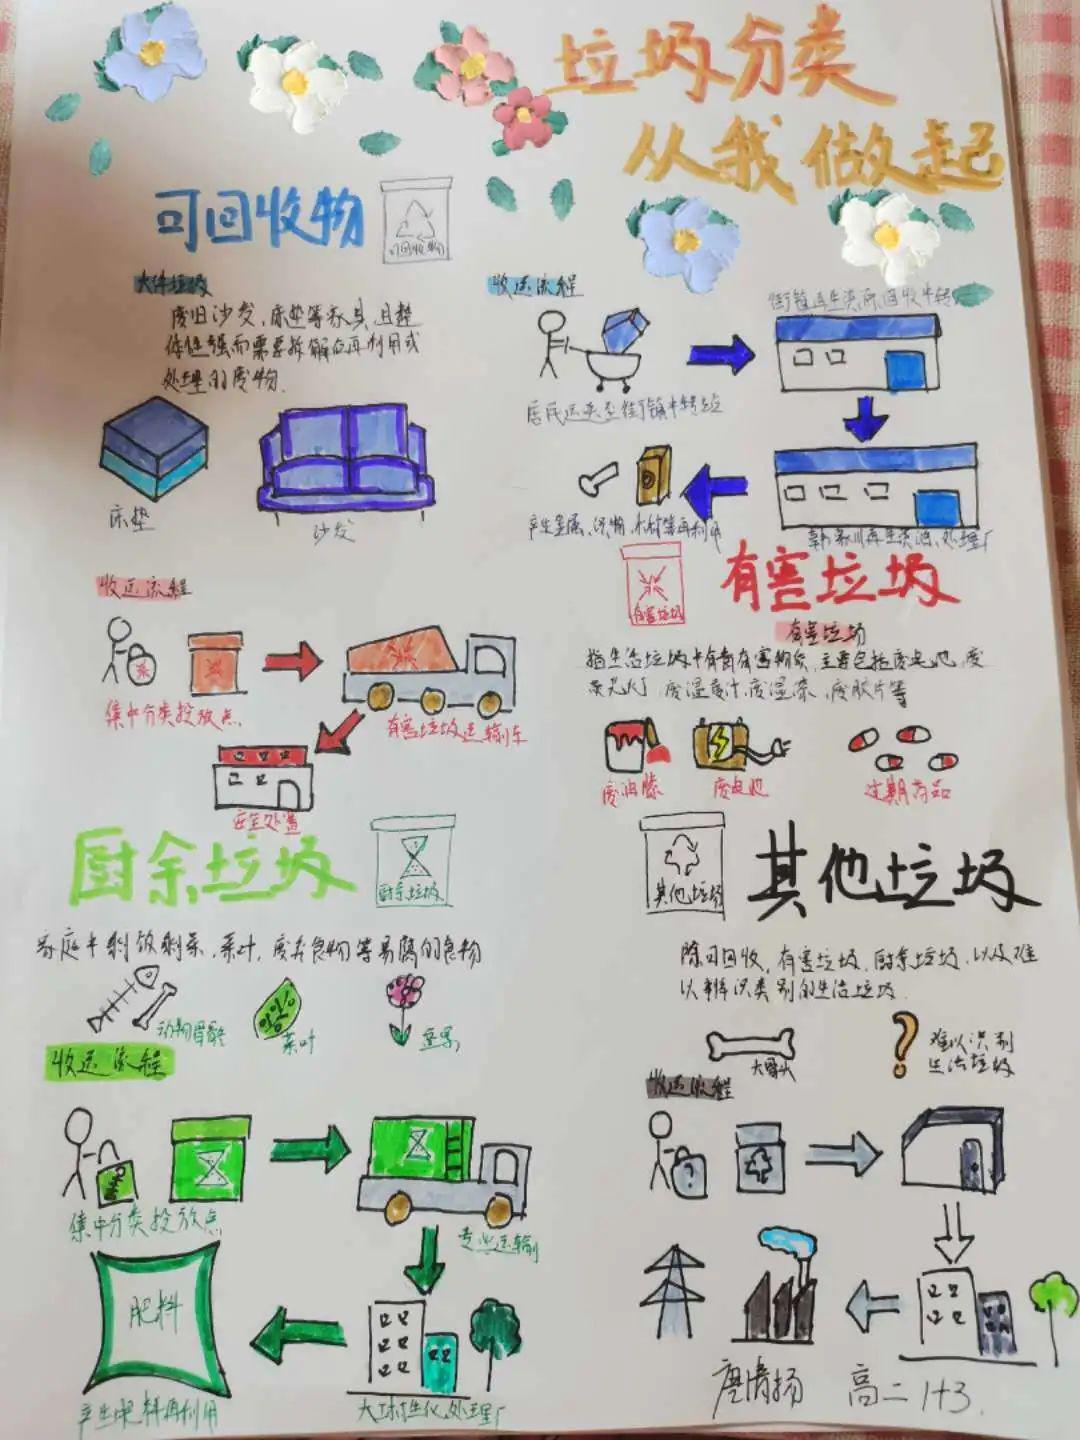 垃圾分类
从我做起
可回收物
可回收物
大件垃圾
废旧沙发、床垫等家具,且整
体性强而需要拆解后再利用或
处理的废物.
床垫
沙发
收运流程
居民运来至街镇中转站
产生金属、织物、木材等再利用
收运流程
集中分类投放点
有害垃圾运输车
安全处置
有害垃圾
有害垃圾
有害垃圾
指生活垃圾中有毒有害物质,主要包括废电池、废
废油漆
废电池
过期药品
厨余垃圾
厨余垃圾
家庭中剩饭剩菜、菜叶,废弃食物等易腐的食物
动物骨骼
菜叶
收运流程
集中分类投放点
专业运输
肥料
产生肥料再利用
其他垃圾
其他垃圾
除可回收,有害垃圾,厨余垃圾,以及难
以辨识类别的生活垃圾.
大骨头
难以识别
生活垃圾
收运流程
高二1+3.